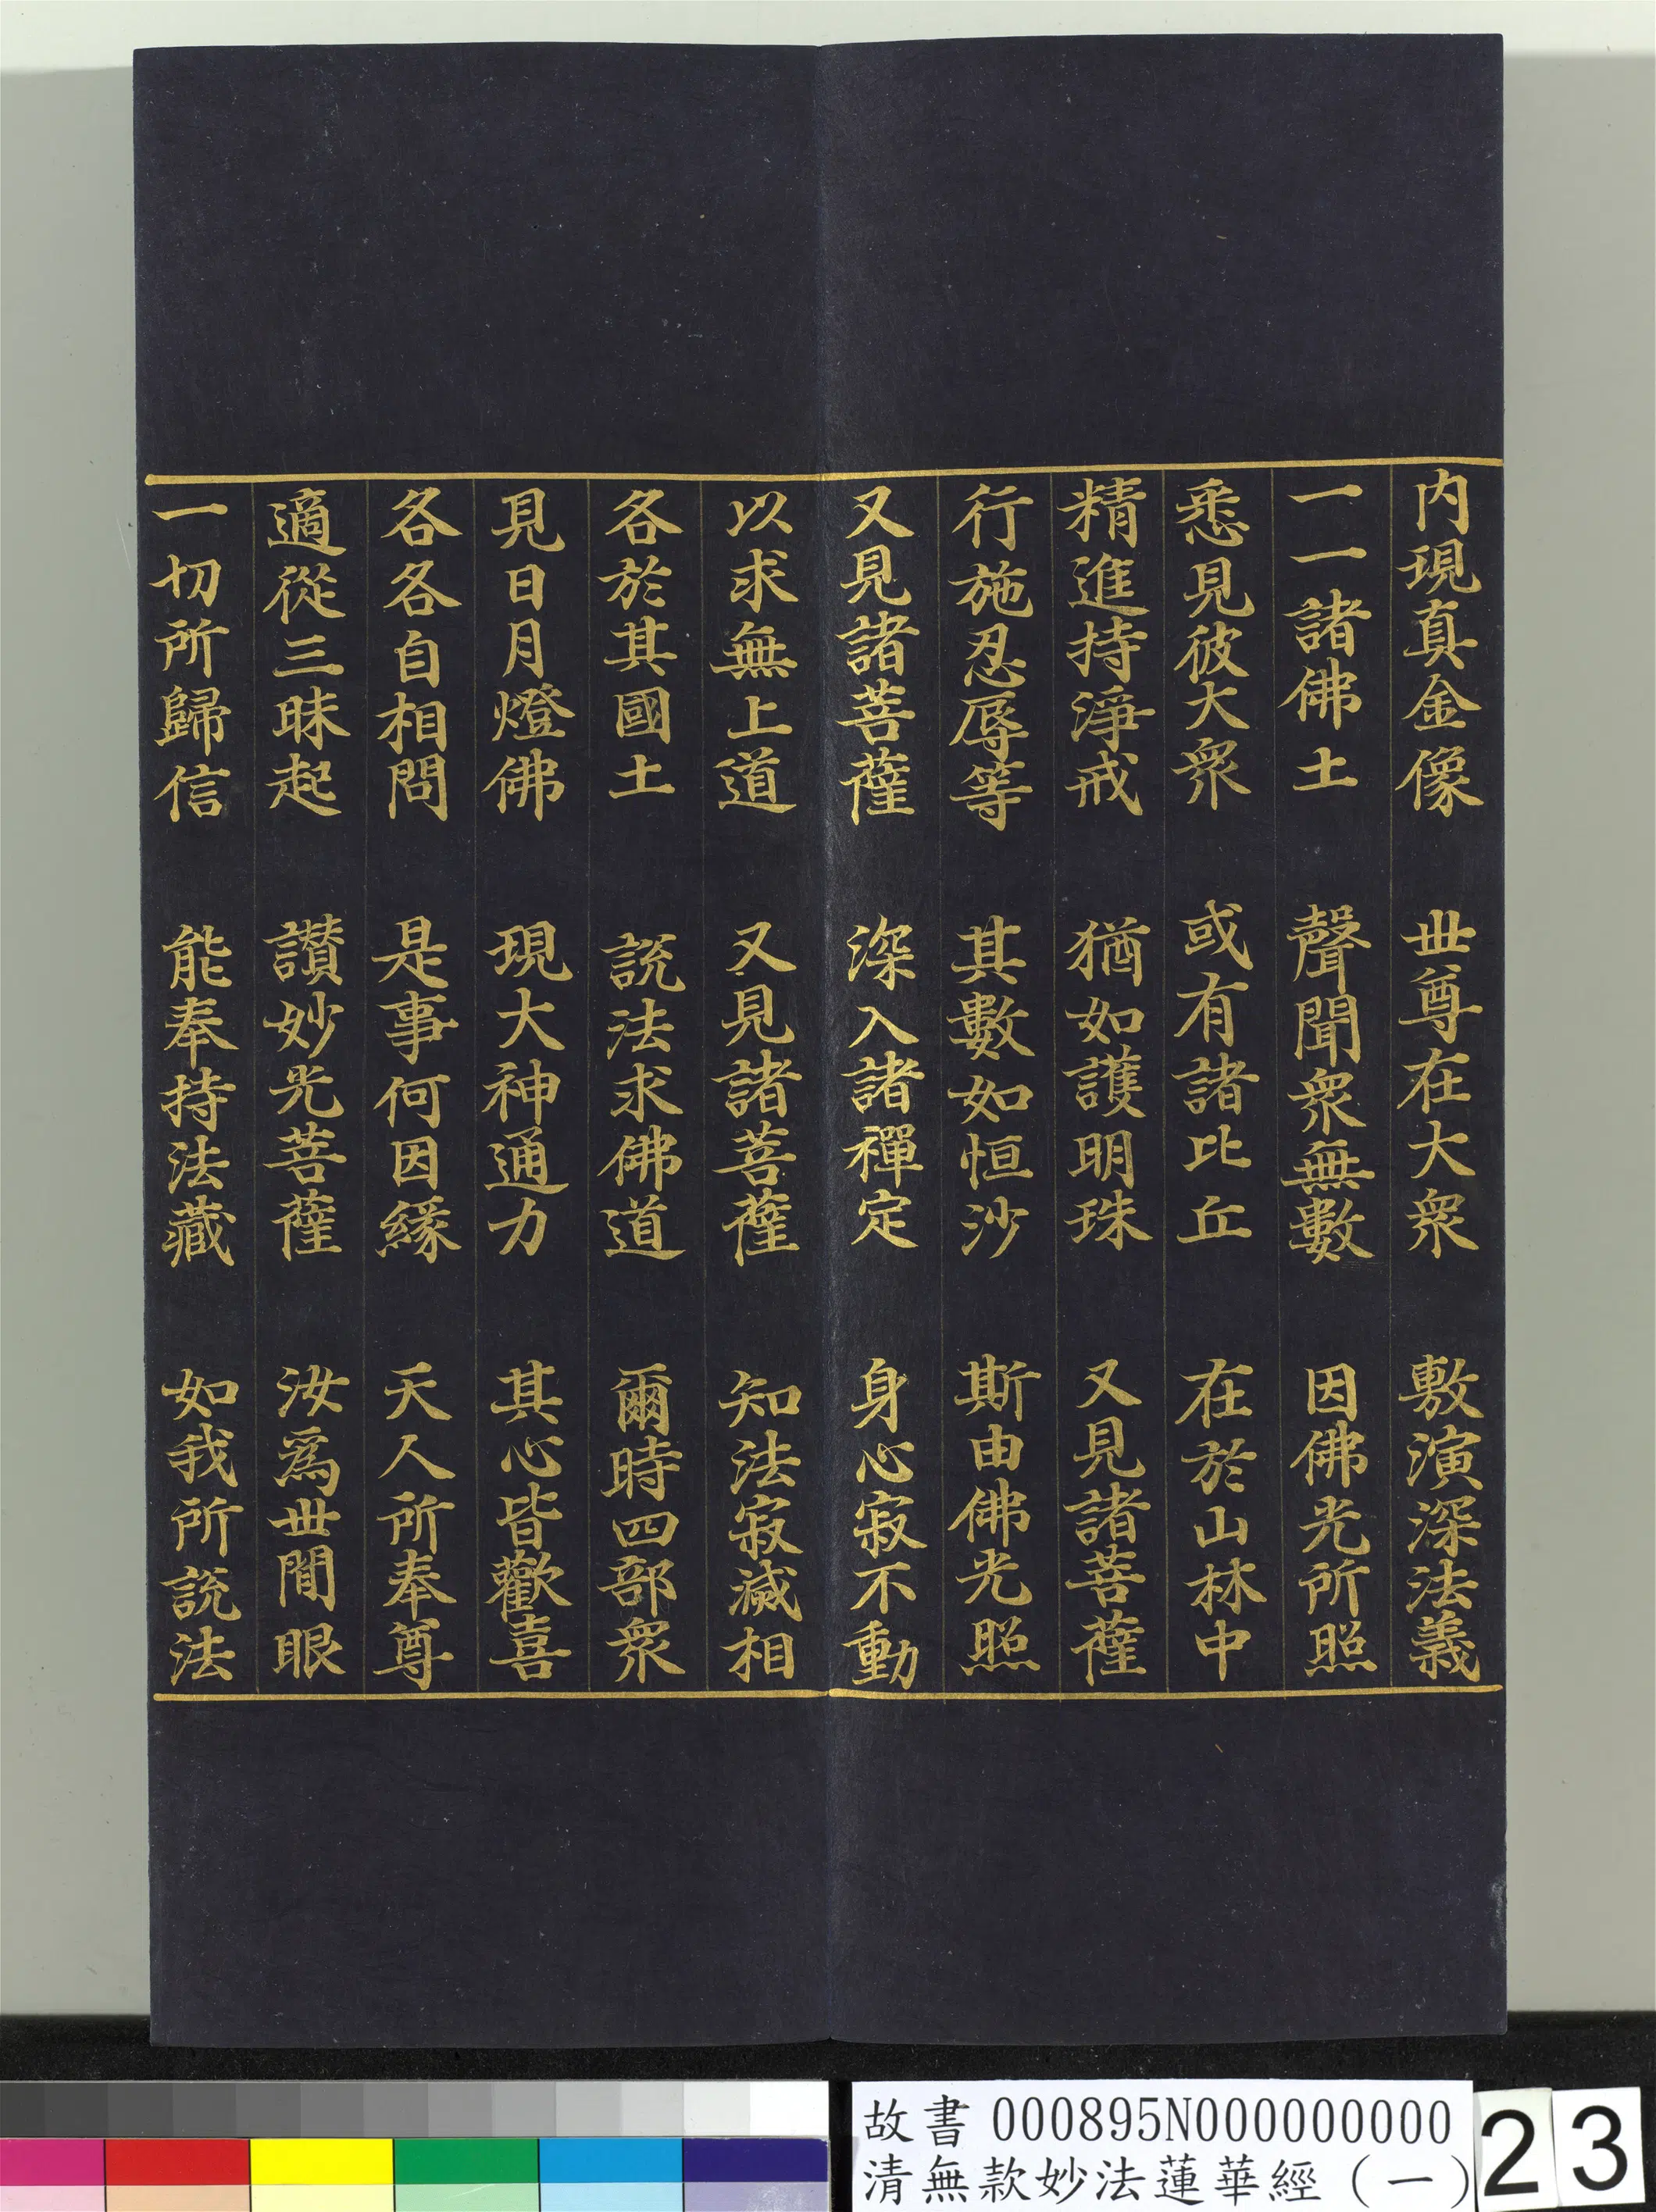 内現真金像　世尊在大衆　敷演深法義
一一諸佛土　聲聞衆無數　因佛光所照
悉見彼大衆　或有諸比丘　在於山林中
精進持淨戒　猶如護明珠　又見諸菩薩
行施忍辱等　其數如恒沙　斯由佛光照
又見諸菩薩　深入諸禪定　身心寂不動
以求無上道　又見諸菩薩　知法寂滅相
各於其國土　説法求佛道　爾時四部衆
見日月燈佛　現大神通力　其心皆歡喜
各各自相問　是事何因緣　天人所奉尊
適從三昧起　讃妙光菩薩　汝爲世間眼
一切所歸信　能奉持法藏　如我所説法
故書 000895N000000000
清無款妙法蓮華經（一）
23